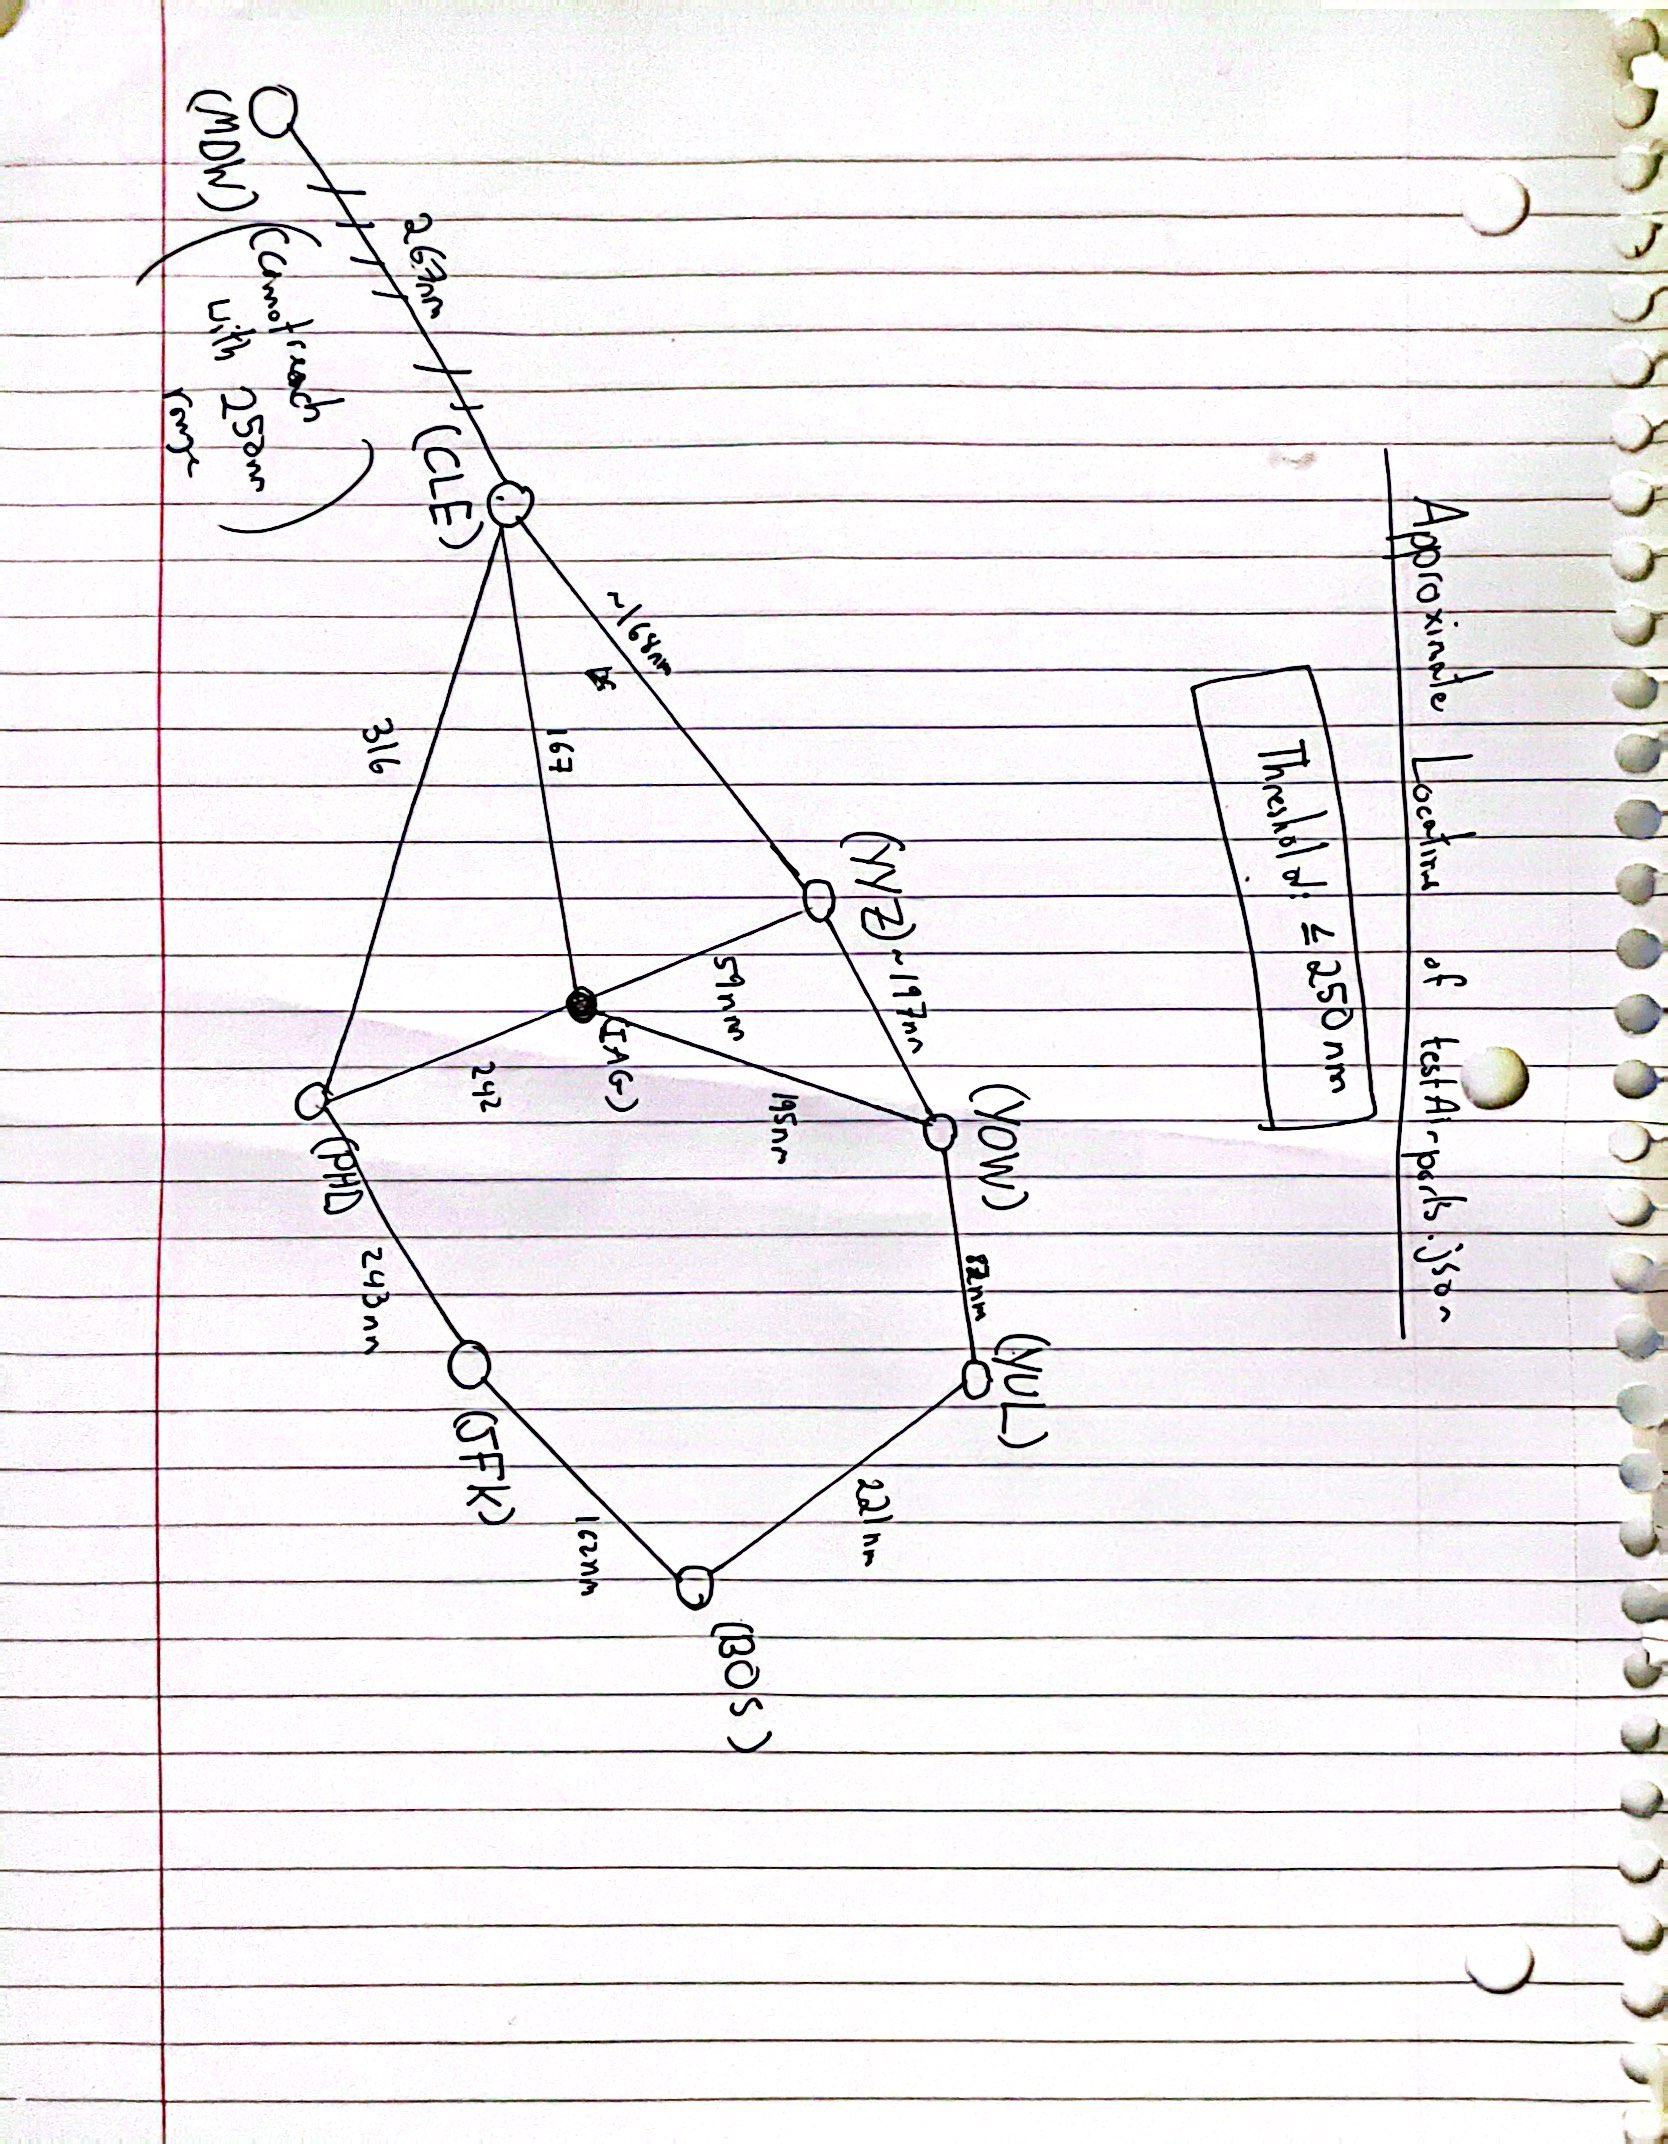 Approximate Locations of testAirports.json
Threshold: ≤ 250 nm
(YOW)
(YUL)
82nm
(YYZ)
~197nm
221nm
195nm
(BOS)
59nm
~168nm
(IAG)
167
162nm
242
(JFK)
(CLE)
267nm
316
243nm
(PHL)
(MDW)
(Cannot reach
with 250nm
range